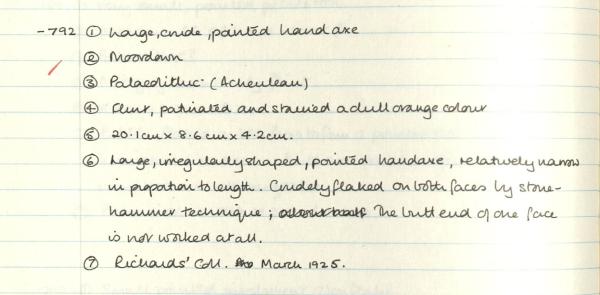 -792 ① Large, crude, pointed handaxe
② Moordown
③ Palaeolithic (Acheulean)
④ Flint, patinated and stained a dull orange colour
⑤ 20.1cm x 8.6cm x 4.2cm.
⑥ Large, irregularly shaped, pointed handaxe, relatively narrow
in proportion to length. Crudely flaked on both faces by stone-
hammer technique; The butt end of one face
is not worked at all.
⑦ Richards' Coll. March 1925.